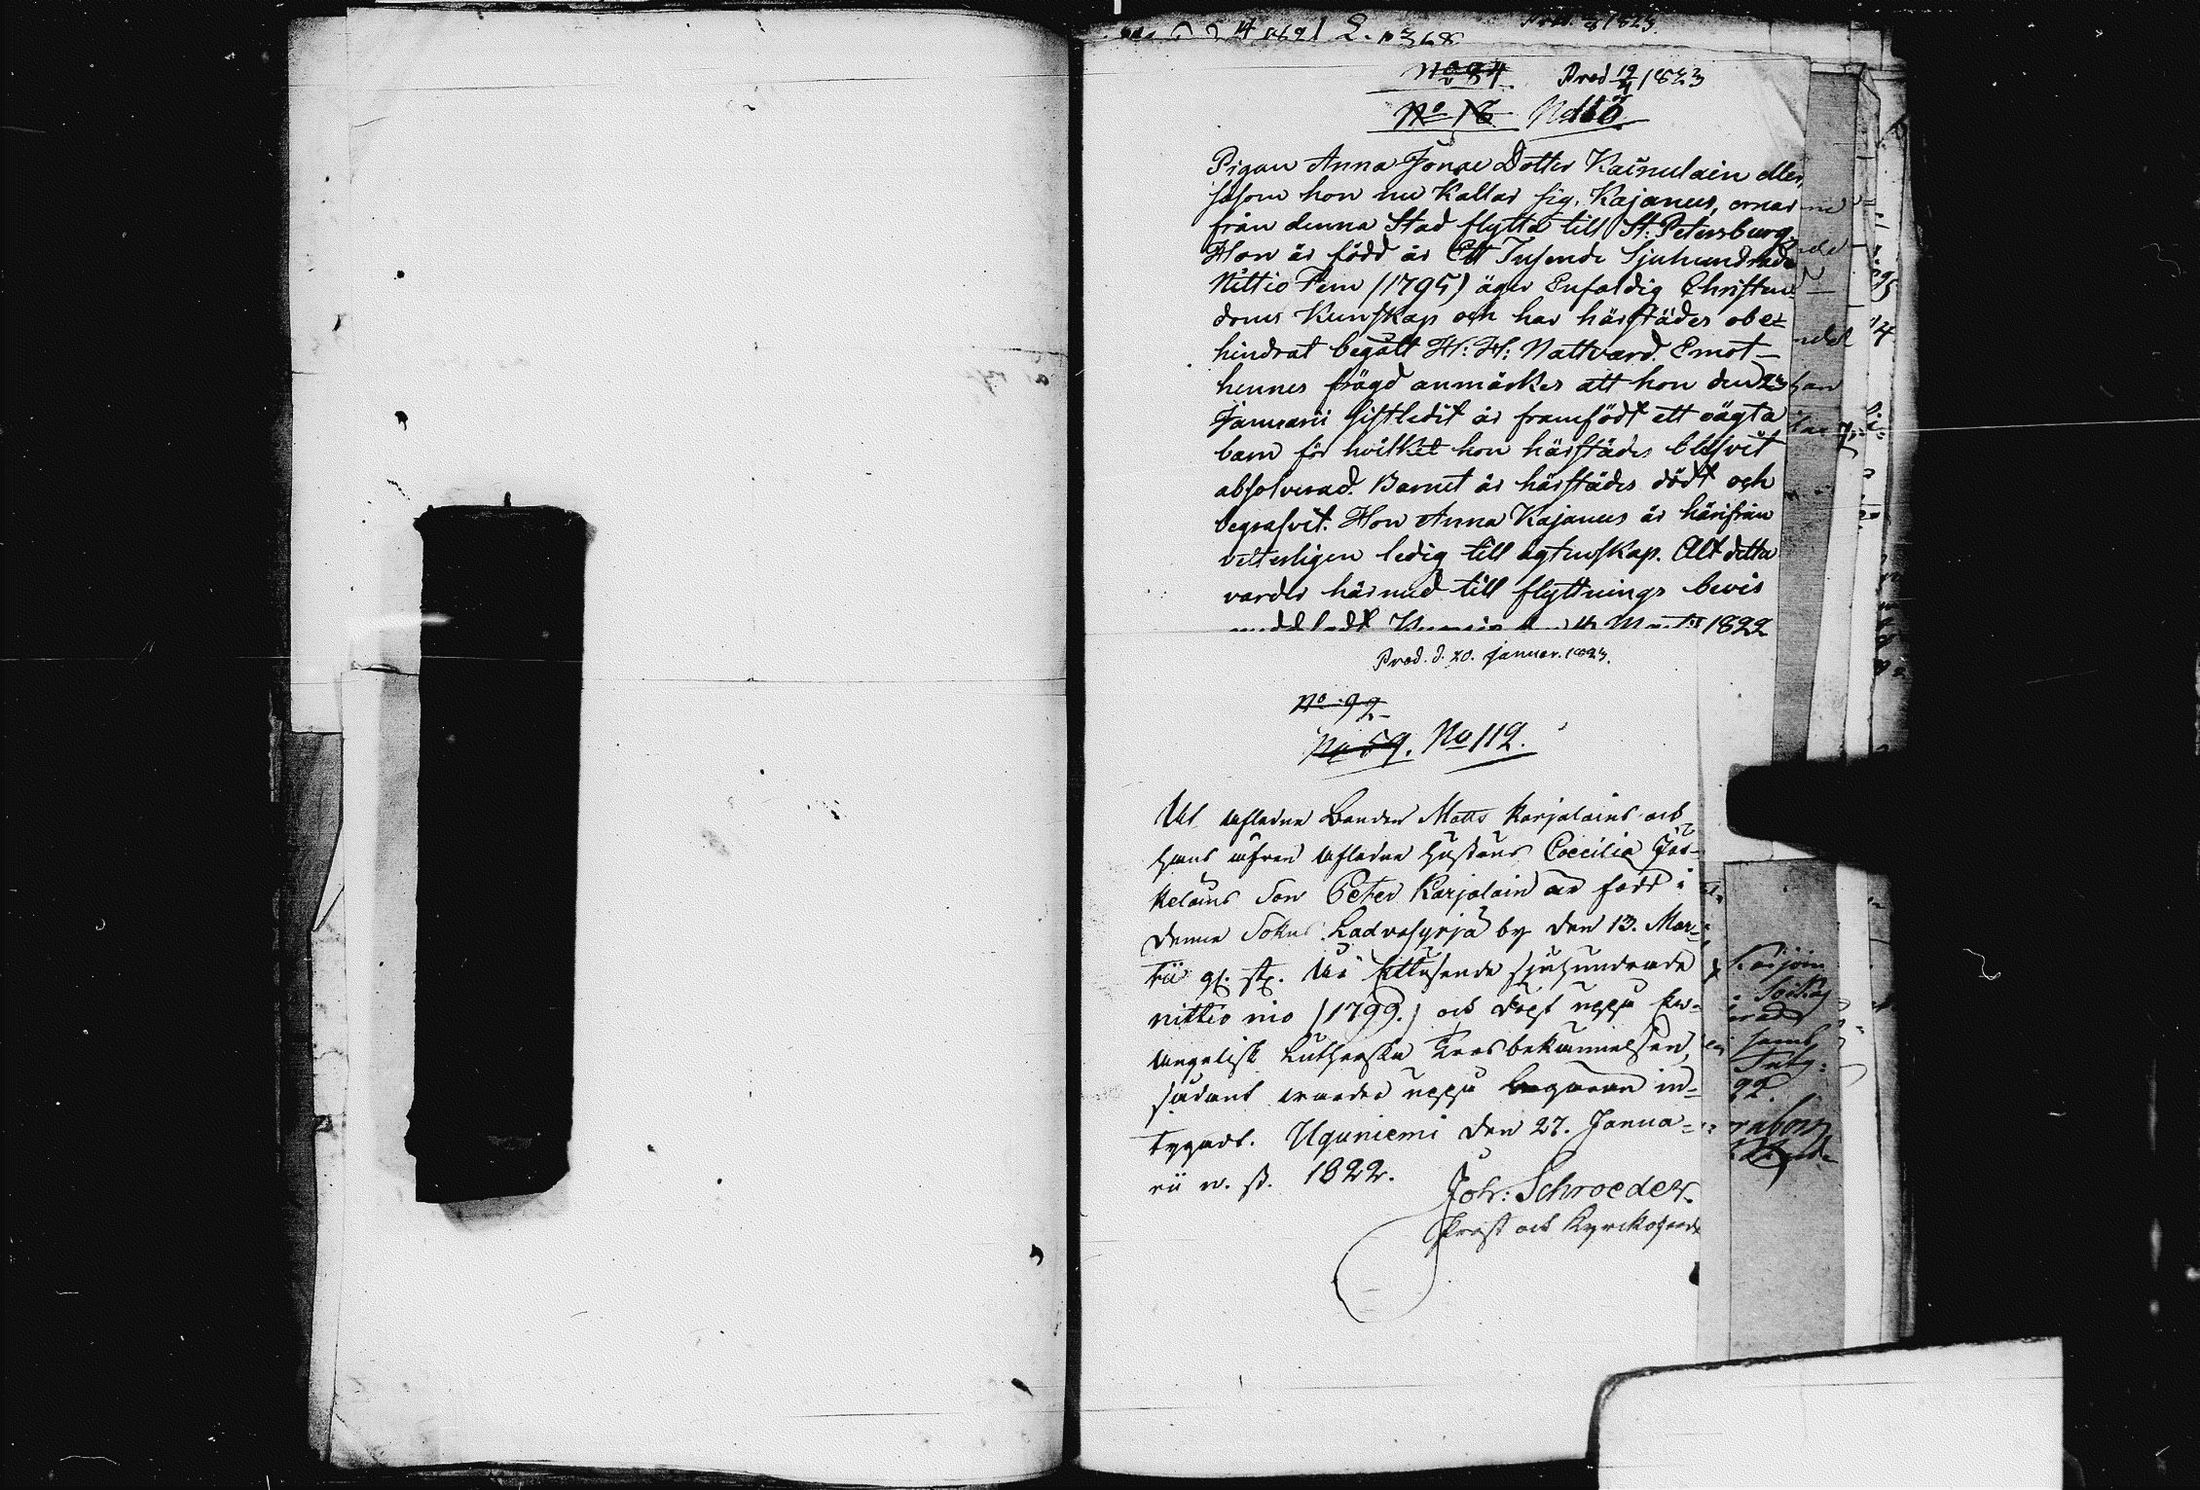 No 84 Prod 19/4 1823
No 16 No 116
Pigan Anna Jonae Dotter Kainulain eller,
såsom hon nu Kallar sig, Kajanus, ernar
från denna Stad flytta till St. Petersburg
Hon är född år Ett Tusende Sjuhundrade
Nittio Fem (1795) äger Enfaldig Christen-
doms Kunskap och har härstädes obe-
hindrat begått H: H: Nattvard. Emot
hennes frägd anmärkes att hon den 23
Januarii sistledit år framfödt ett oägta
barn för hvilket hon härstädes blifvit
absolverad. Barnet är härstädes dödt och
begrafvit. Hon Anna Kajanus är härifrån
vetterligen ledig till ägtenskap. Allt detta
varder härmed till flyttnings bevis
meddeladt 1822
Prod. d. 20. Januar. 1823.
No 92
No 59. No 112.
Att afledne Bonden Matts Karjalains och
hans äfven afledne Hustrus Coecilia Jäs-
kelains Son Peter Karjalain är född i
denna Sokns Ladvasyrjä by den 13. Mar-
tii gl. st. År Ettusende sjuhundrade
nittio nio (1799.) och döpt uppå Ev-
angelisk Lutherska Trosbekännelsen,
sådant warder uppå begäran in-
tygadt. Uguniemi den 27. Janua-
rii n. st. 1822.
Joh: Schroeder.
Prost och Kyrckoherde